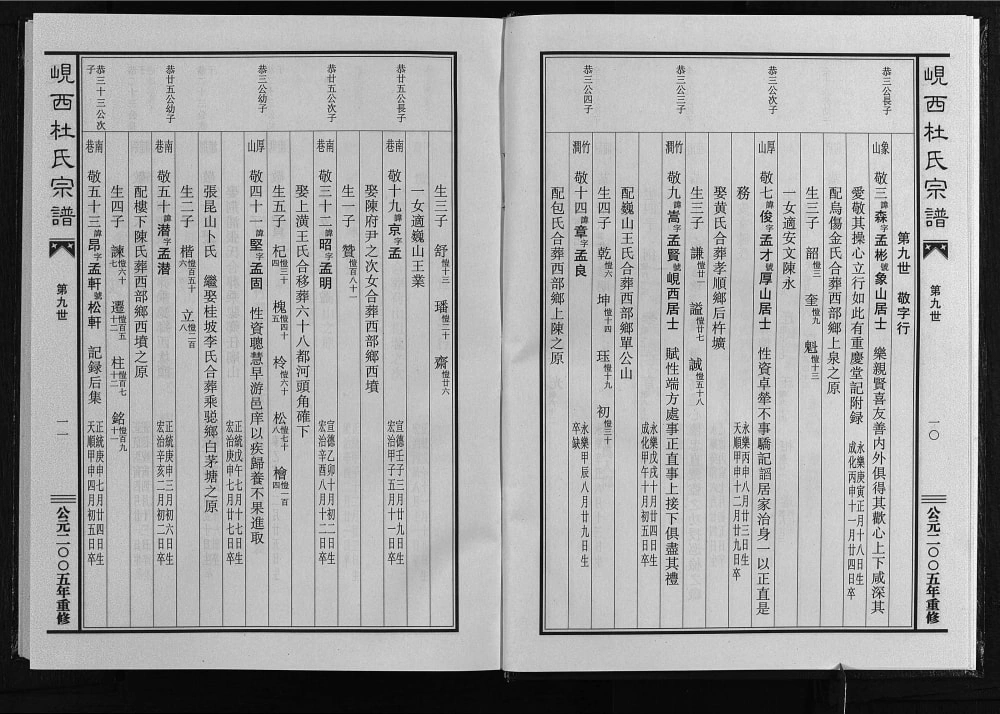 峴西杜氏宗譜
第九世
一〇
公元二〇〇五年重修
第九世 敬字行
恭三公長子
象山 敬三諱森字孟彬號象山居士 樂親賢喜友善內外俱得其歡心上下咸深其
愛敬其操心立行如此有重慶堂記附録 永樂庚寅正月十八日生 成化丙申十一月廿四日卒
配烏傷金氏合葬西部鄉上泉之原
生三子 韶愷三 奎愷九 魁愷十三
一女適安文陳永
恭三公次子
厚山 敬七諱俊字孟才號厚山居士 性資卓犖不事驕記謟居家治身一以正直是
務 永樂丙申八月廿三日生 天順甲申十二月廿九日卒
娶黄氏合葬孝順鄉后杵墉
生三子 謙愷廿一 謚愷廿七 誠愷五十八
恭三公三子
竹澗 敬九諱嵩字孟賢號峴西居士 賦性端方處事正直事上接下俱盡其禮
永樂戊戌十月廿四日生 成化甲午十月初五日卒
配巍山王氏合葬西部鄉單公山
生四子 乾愷六 坤愷十四 珏愷十九 初愷三十
恭三公四子
竹澗 敬十四諱章字孟良 永樂甲辰八月廿九日生 卒缺
配包氏合葬西部鄉上陳之原
生三子 舒愷十三 璠愷二十 齋愷廿六
一女適巍山王業
恭廿五公長子
南巷 敬十九諱京字孟 宣德壬子三月廿九日生 宏治甲子五月十一日卒
娶陳府尹之次女合葬西部鄉西墳
生一子 贊愷百八十一
恭廿五公次子
南巷 敬三十二諱昭字孟明 宣德乙卯十月初二日生 宏治辛酉八月十二日卒
娶上潢王氏合移葬六十八都河頭角確下
生五子 杞愷三十四 槐愷四十五 柃愷六十 松愷七十八 檜愷一百四
恭三公幼子
厚山 敬四十一諱堅字孟固 性資聰慧早游邑庠以疾歸養不果進取
正統戊午七月十七日生 宏治庚申七月廿七日卒
張昆山卜氏 繼娶桂坡李氏合葬乘驄鄉白茅塘之原
生二子 楷愷百五十六 立愷二百八
恭廿五公幼子
南巷 敬五十諱潜字孟潜 正統庚申三月初六日生 宏治辛亥二月初二日卒
配樓下陳氏葬西部鄉西墳之原
生四子 諫愷六十七 遷愷百五十二 柱愷百七十二 銘愷百九
恭三十三公次子
南巷 敬五十三諱昂字孟軒號松軒 記録后集 正統庚申七月廿五日生 天順甲申四月初四日卒
峴西杜氏宗譜
第九世
一一
公元二〇〇五年重修